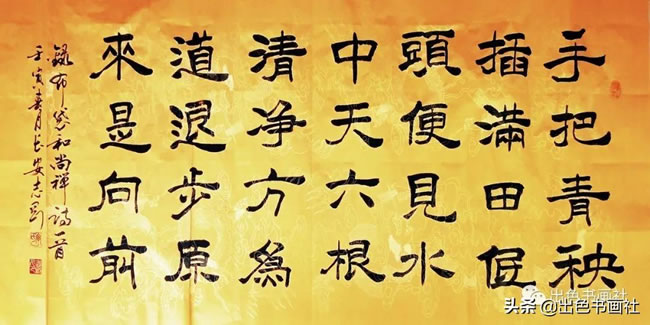 手把青秧
插滿田低
頭便見水
中天六根
清净方為
道退步原
來是向前
錄布袋和尚禪詩一首
壬寅春月长安志刚
出色书画社
头条@出色书画社